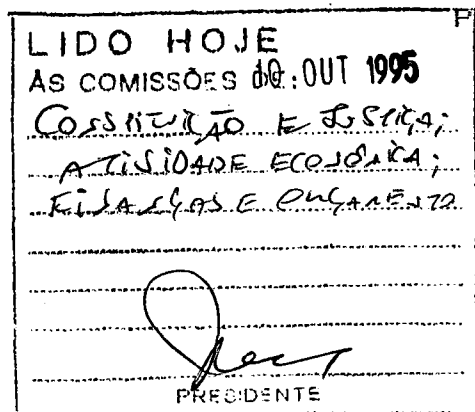 LIDO HOJE
AS COMISSÕES OUT 1995
CONSTITUIÇÃO E JUSTIÇA;
ATIVIDADE ECONÔMICA;
FINANÇAS E ORÇAMENTO
PRESIDENTE